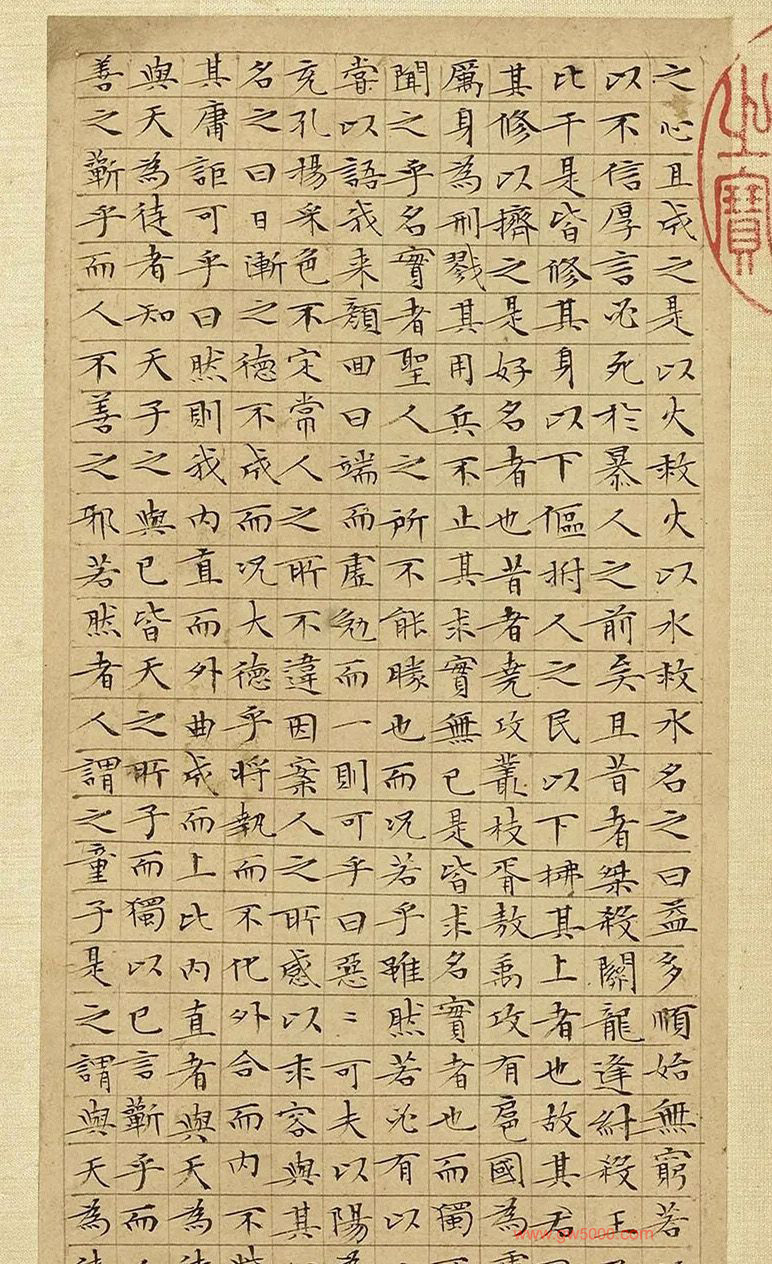 之心且成之是以火救火以水救水名之曰益多順始無窮若
以不信厚言必死於暴人之前矣且昔者桀殺關龍逢紂殺王
比干是皆修其身以下傴拊人之民以下拂其上者也故其君
其修以擠之是好名者也昔者堯攻叢枝胥敖禹攻有扈國為
厲身為刑戮其用兵不止其求實無已是皆求名實者也而獨
聞之乎名實者聖人之所不能勝也而況若乎雖然若必有以
嘗以語我来顏回曰端而虛勉而一則可乎曰惡〻可夫以陽
充孔揚采色不定常人之所不違因案人之所感以求容與其
名之曰日漸之德不成而況大德乎將執而不化外合而內不
其庸詎可乎曰然則我內直而外曲成而上比內直者與天為
與天為徒者知天子之與已皆天之所子而獨以已言蘄乎而
善之蘄乎而人不善之邪若然者人謂之童子是之謂與天為
寶
www.gw5000.com